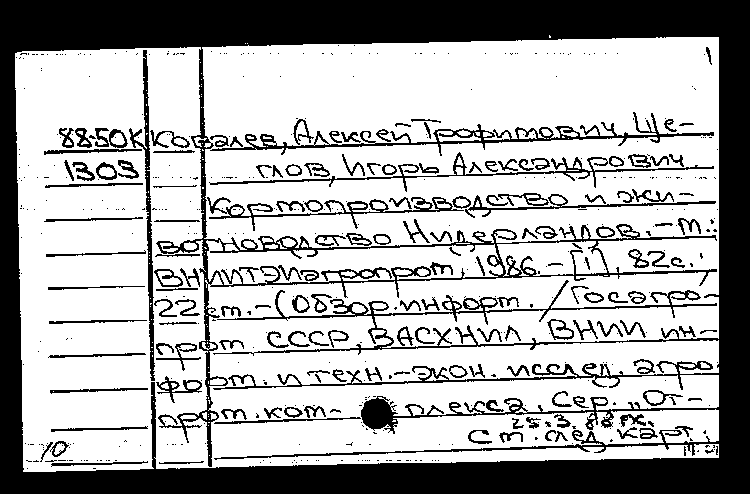 1
88-50К Ковалев, Алексей Трофимович, Ще-
1303 глов, Игорь Александрович.
Кормопроизводство и жи-
вотноводство Нидерландов. - М.:
ВНИИТЭИагропром, 1986. - [1], 82с.;
22 см. - (Обзор. информ. / Госагро-
пром СССР, ВАСХНИЛ, ВНИИ ин-
форм. и техн.-экон. исслед. агро
пром. ком- плекса. Сер. „От-
25.3.88
См. след. карт.
10